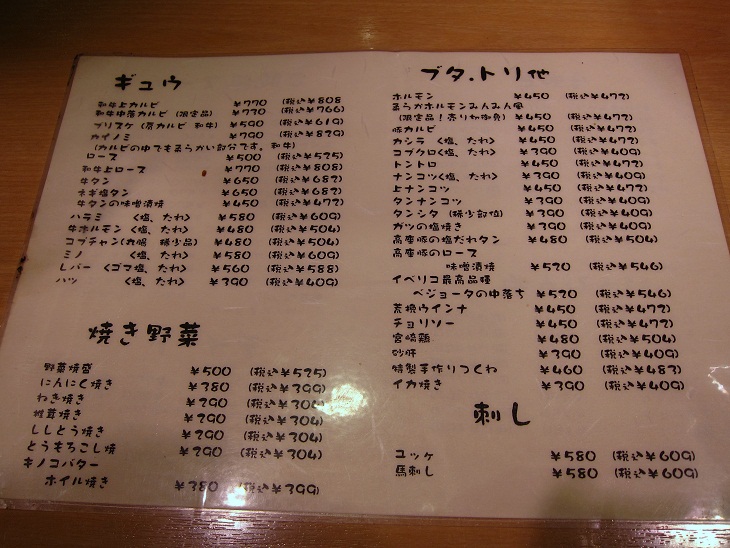 ギュウ
和牛上カルビ ¥770 (税込¥808
和牛中落カルビ (限定品) ¥730 (税込¥766)
ブリスケ (肩カルビ 和牛) ¥590 (税込¥619)
カイノミ ¥790 (税込¥829)
(カルビの中でも柔らかい部分です。和牛)
ロース ¥500 (税込¥525)
和牛上ロース ¥770 (税込¥808)
牛タン ¥650 (税込¥682)
ネギ塩タン ¥650 (税込¥682)
牛タンの味噌漬焼 ¥450 (税込¥472)
ハラミ <塩、たれ> ¥580 (税込¥609)
牛ホルモン <塩、たれ> ¥480 (税込¥504)
コプチャン(丸腸 稀少品) ¥480 (税込¥504)
ミノ <塩、たれ> ¥580 (税込¥609)
レバー <ゴマ塩、たれ> ¥560 (税込¥588)
ハツ <塩、たれ> ¥390 (税込¥409)
焼き野菜
野菜焼盛 ¥500 (税込¥525)
にんにく焼き ¥380 (税込¥399)
ねぎ焼き ¥290 (税込¥304)
椎茸焼き ¥290 (税込¥304)
ししとう焼き ¥290 (税込¥304)
とうもろこし焼 ¥290 (税込¥304)
キノコバター
ホイル焼き ¥380 (税込¥399)
ブタ.トリ他
ホルモン ¥450 (税込¥472)
柔らかホルモンみんみん風
(限定品!売り切御免) ¥450 (税込¥472)
豚カルビ ¥450 (税込¥472)
カシラ <塩、たれ> ¥450 (税込¥472)
コブクロ<塩、たれ> ¥390 (税込¥409)
トントロ ¥450 (税込¥472)
ナンコツ<塩、たれ> ¥390 (税込¥409)
上ナンコツ ¥450 (税込¥472)
タンナンコツ ¥390 (税込¥409)
タンシタ (稀少部位) ¥390 (税込¥409)
ガツの塩焼き ¥390 (税込¥409)
高座豚の塩だれタン ¥480 (税込¥504)
高座豚のロース
味噌漬焼 ¥520 (税込¥546)
イベリコ最高品種
ベジョータの中落ち ¥520 (税込¥546)
荒挽ウインナ ¥450 (税込¥472)
チョリソー ¥450 (税込¥472)
宮崎鶏 ¥480 (税込¥504)
砂肝 ¥390 (税込¥409)
特製手作りつくね ¥460 (税込¥483)
イカ焼き ¥390 (税込¥409)
刺し
ユッケ ¥580 (税込¥609)
馬刺し ¥580 (税込¥609)